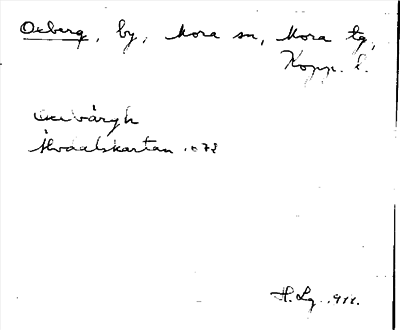 Oxberg, by, Mora sn, Mora tg,
Kopp. l.
Oxebärgh
Älvdalskartan
H. Lg. 1911.